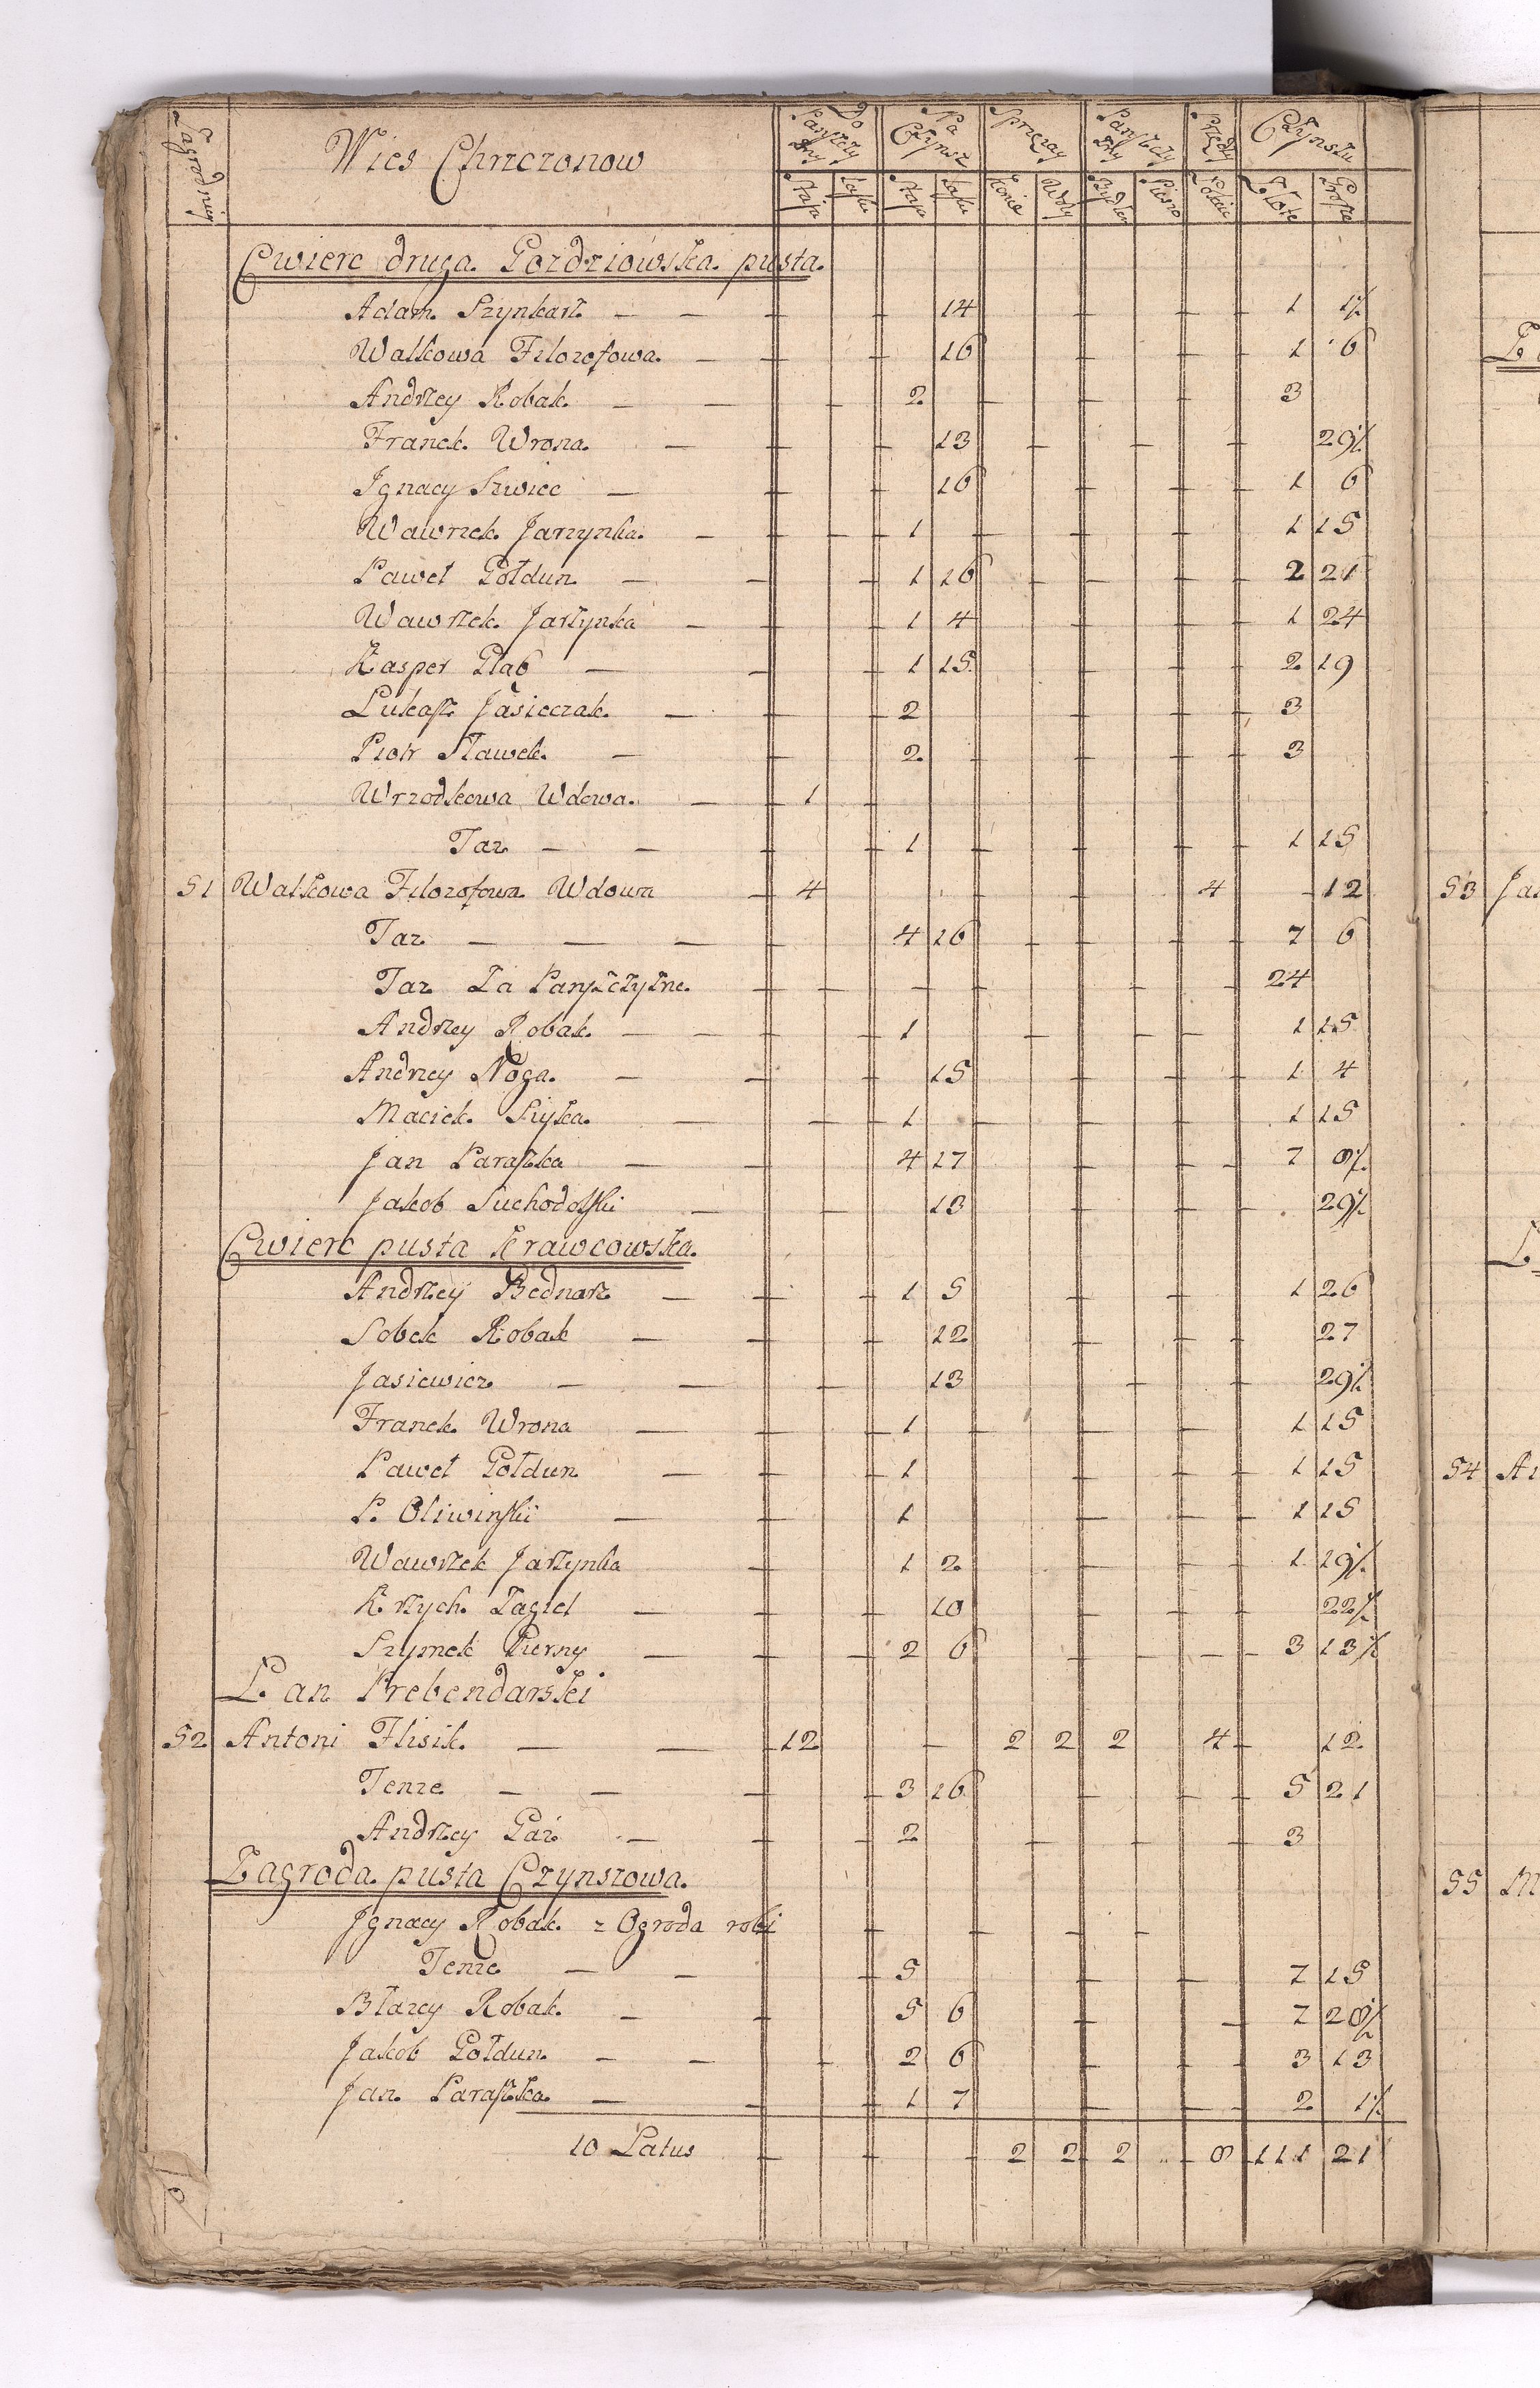 Zagrodnicy
Wies Chrzczonow
Do Panszczyzny
Na Czynsz
Sprzezay
Panszczyzny
Przedzy
Czynszu
Staja Laski Staja Laski Konie Woły Bydłem Pieszo Łokcie Złote Grosze
Cwierc druga Gozdziowska pusta.
Adam Szynkarz — — 14 1 1½
Walkowa Filozofowa — 16 1 6
Andrzey Robak — — 2 3
Franek Wrona — 13 29½
Jgnacy Szwiec — 16 1 6
Wawrzek Jarzynka — 1 1 15
Paweł Gołdun — — 1 16 2 21
Wawrzek Jarzynka — 1 4 1 24
Kasper Głąb — — 1 15 2 19
Lukasz Jasieczak — 2 3
Piotr Sławek — 2 3
Wrzodkowa Wdowa — 1
Taz — — 1 1 15
51 Walkowa Filozofowa Wdowa — 4 4 12
Taz — — — 4 16 7 6
Taz Za Panszczyzne 24
Andrzey Robak — — 1 1 15
Andrzey Noga — — 15 1 4
Maciek Szyska — 1 1 15
Jan Paraszka — — 4 17 7 8½
Jakob Suchodolski — 13 29½
Cwierc pusta Krawcowska.
Andrzey Bednarz — 1 5 1 26
Sobek Robak — 12 27
Jasiewicz — — 13 29½
Franek Wrona — 1 1 15
Paweł Gołdun — 1 1 15
P. Oliwinski — 1 1 15
Wawrzek Jarzynka 1 2 1 19½
Krzych Zagiel — 10 22½
Szymek Pierny — 2 6 3 13½
Łan Prebendarski
52 Antoni Flisik — — 12 2 2 2 4 12
Tenze — — — 3 16 5 21
Andrzey Gaz — 2 3
Zagroda pusta Czynszowa.
Jgnacy Robak z Ogroda robi
Tenze — — 5 7 15
Błazey Robak — 5 6 7 28½
Jakob Gołdun — — 2 6 3 13
Jan Paraszka — 1 7 2 1½
10 Latus 2 2 2 8 111 21
53 Ja
54 A
55 M